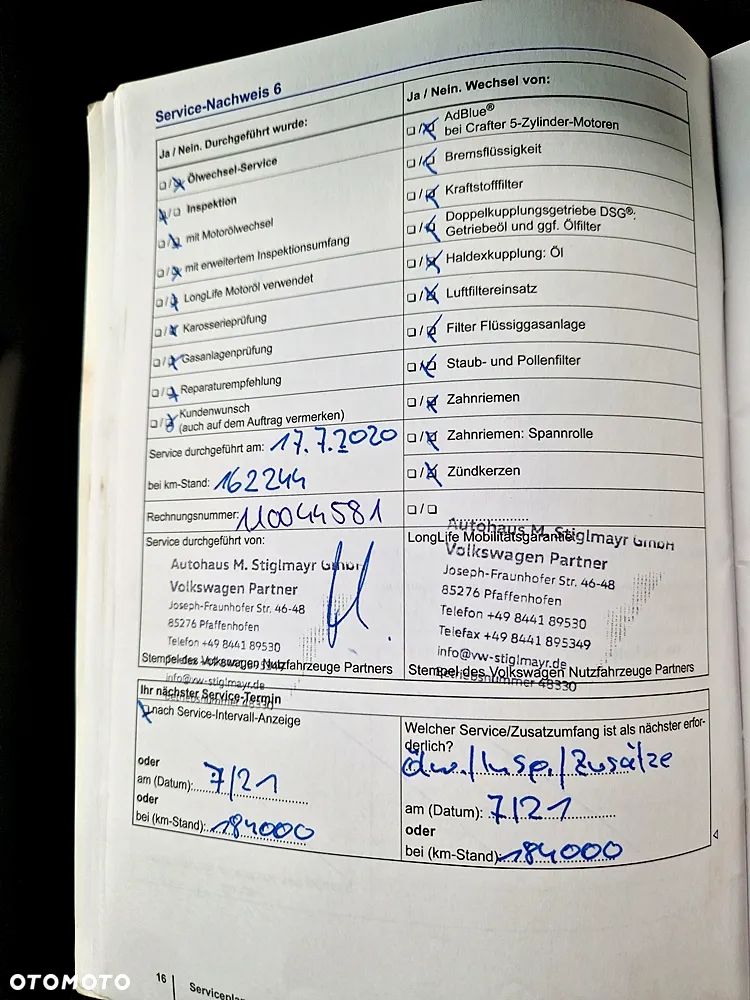 Service-Nachweis 6
Ja / Nein. Durchgeführt wurde:
☐/☒ Ölwechsel-Service
☒/☐ Inspektion
☐/☒ mit Motorölwechsel
☐/☒ mit erweitertem Inspektionsumfang
☐/☒ LongLife Motoröl verwendet
☐/☒ Karosserieprüfung
☐/☒ Gasanlagenprüfung
☐/☒ Reparaturempfehlung
☐/☒ Kundenwunsch
(auch auf dem Auftrag vermerken)
Service durchgeführt am: 17.7.2020
bei km-Stand: 162244
Rechnungsnummer: 110044581
Service durchgeführt von:
Autohaus M. Stiglmayr GmbH
Volkswagen Partner
Joseph-Fraunhofer Str. 46-48
85276 Pfaffenhofen
Telefon +49 8441 89530
Stempel des Volkswagen Nutzfahrzeuge Partners
info@vw-stiglmayr.de
Ja / Nein. Wechsel von:
☐/☒ AdBlue®
bei Crafter 5-Zylinder-Motoren
☐/☒ Bremsflüssigkeit
☐/☒ Kraftstofffilter
☐/☒ Doppelkupplungsgetriebe DSG®:
Getriebeöl und ggf. Ölfilter
☐/☒ Haldexkupplung: Öl
☐/☒ Luftfiltereinsatz
☐/☒ Filter Flüssiggasanlage
☐/☒ Staub- und Pollenfilter
☐/☒ Zahnriemen
☐/☒ Zahnriemen: Spannrolle
☐/☒ Zündkerzen
☐/☐
Autohaus M. Stiglmayr GmbH
LongLife Mobilitätsgarantie
Volkswagen Partner
Joseph-Fraunhofer Str. 46-48
85276 Pfaffenhofen
Telefon +49 8441 89530
Telefax +49 8441 895349
info@vw-stiglmayr.de
Stempel des Volkswagen Nutzfahrzeuge Partners
Betriebsnummer 48330
Ihr nächster Service-Termin
☒ nach Service-Intervall-Anzeige
oder
am (Datum): 7/21
oder
bei (km-Stand): 184000
Welcher Service/Zusatzumfang ist als nächster erfor-
derlich?
Ölw./Insp./Zusätze
am (Datum): 7/21
oder
bei (km-Stand): 184000
16
OTOMOTO